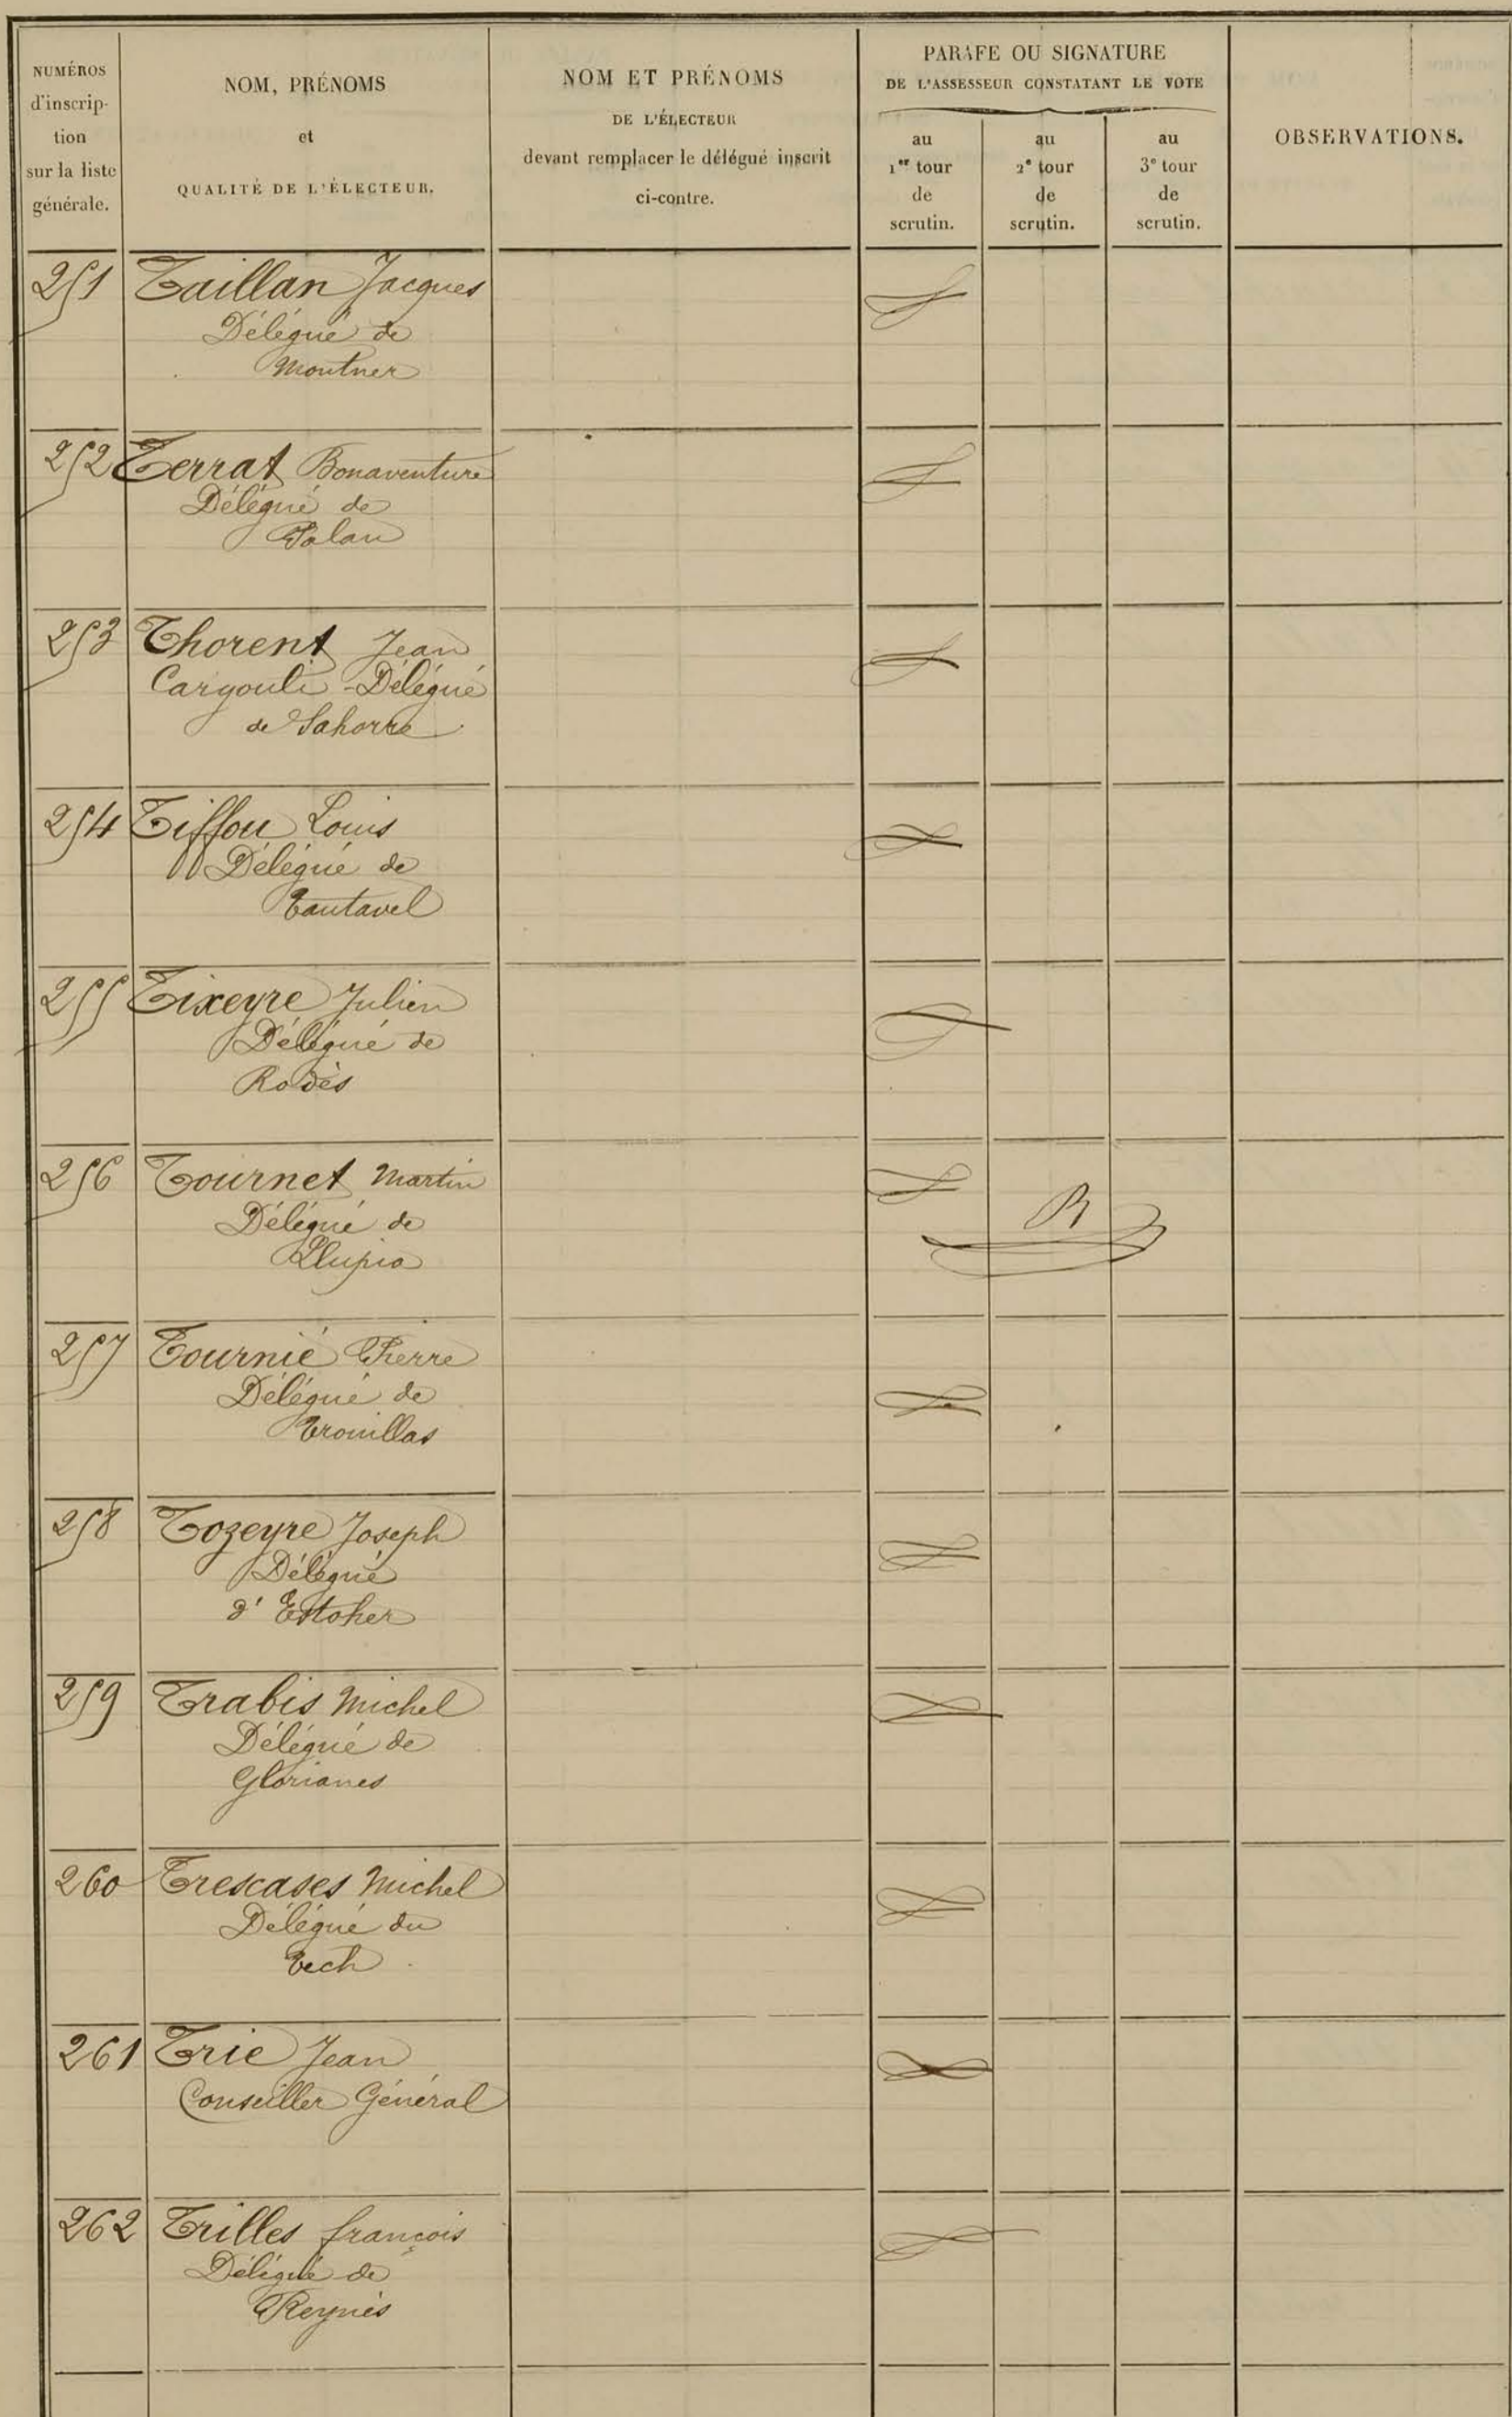 NUMÉROS
d'inscrip-
tion
sur la liste
générale.
NOM, PRÉNOMS
et
QUALITÉ DE L'ÉLECTEUR.
NOM ET PRÉNOMS
DE L'ÉLECTEUR
devant remplacer le délégué inscrit
ci-contre.
PARAFE OU SIGNATURE
DE L'ASSESSEUR CONSTATANT LE VOTE
au
1er tour
de
scrutin.
au
2e tour
de
scrutin.
au
3e tour
de
scrutin.
OBSERVATIONS.
251 Taillan Jacques
Délégué de
Montner
252 Terrat Bonaventure
Délégué de
Palau
253 Thorent Jean
Cargouli - Délégué
de Sahorre
254 Tiffou Louis
Délégué de
Tautavel
255 Tixeyre Julien
Délégué de
Rodès
256 Tournet Martin
Délégué de
Llupia
257 Tournié Pierre
Délégué de
Trouillas
258 Tozeyre Joseph
Délégué
d'Estoher
259 Trabis Michel
Délégué de
Glorianes
260 Trescases Michel
Délégué du
Tech
261 Trie Jean
Conseiller Général
262 Trilles françois
Délégué de
Reynès